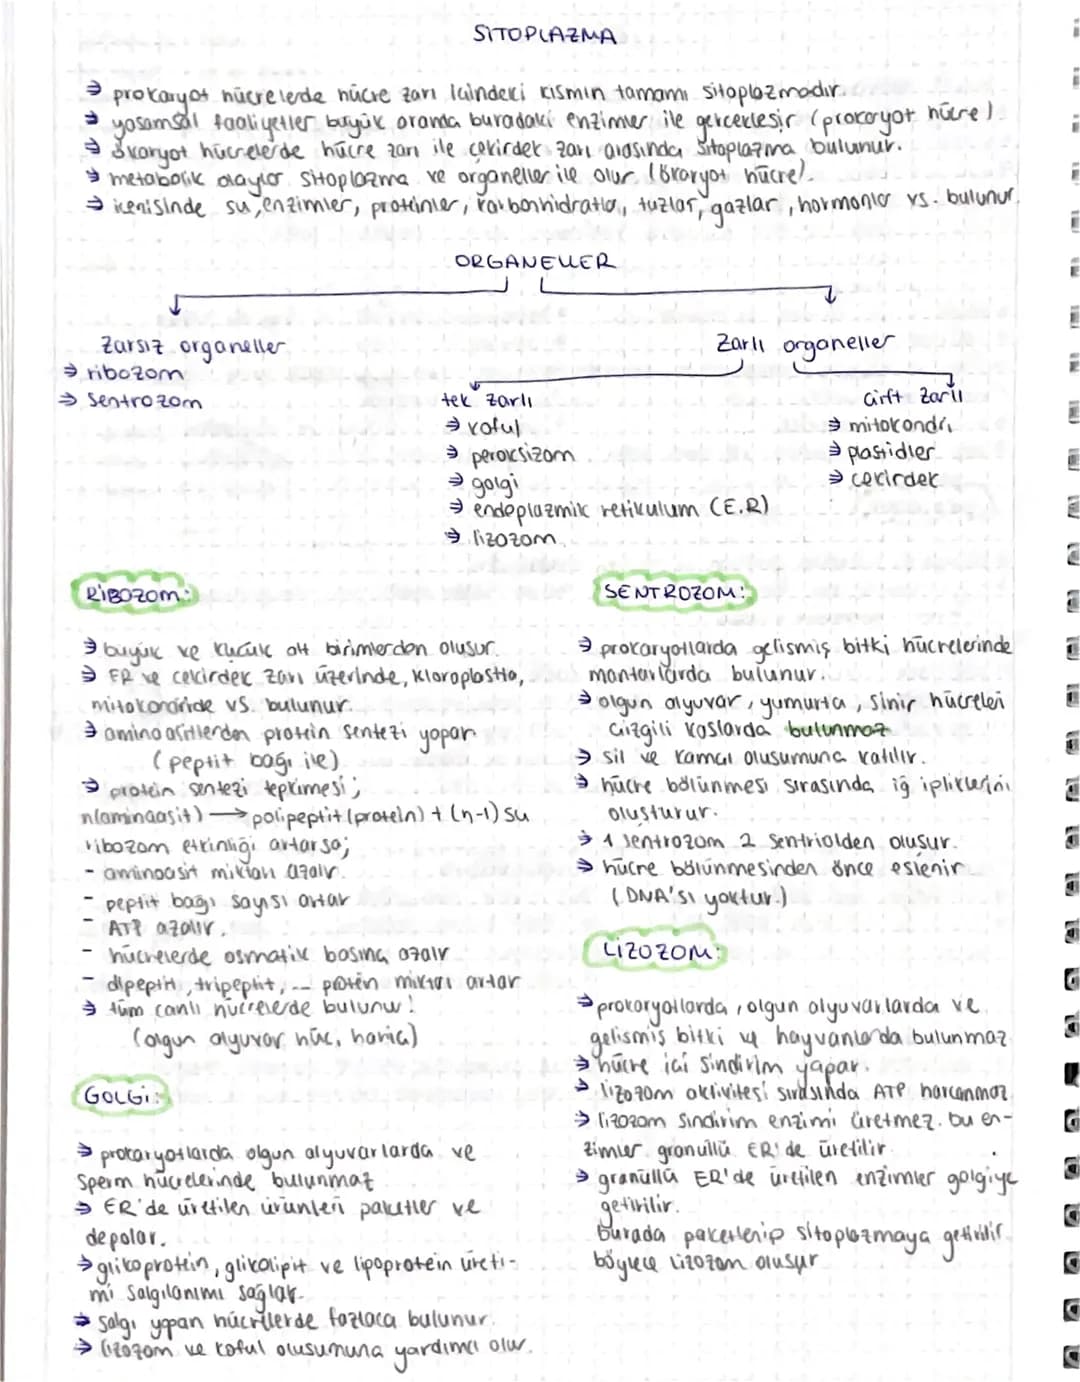 SİTOPLAZMA
→ prokaryot hücrelerde hücre zarı içindeki kısmın tamamı sitoplazmadır.
→ yaşamsal faaliyetler büyük oranda buradaki enzimler ile gerçekleşir (prokaryot hücre)
→ ökaryot hücrelerde hücre zarı ile çekirdek zarı arasında sitoplazma bulunur.
→ metabolik olaylar sitoplazma ve organeller ile olur (ökaryot hücre).
→ içerisinde su, enzimler, proteinler, karbonhidratlar, tuzlar, gazlar, hormonlar vs. bulunur.
ORGANELLER
Zarsız organeller
→ ribozom
→ Sentrozom
Zarlı organeller
tek zarlı
→ koful
→ peroksizom
→ golgi
→ endoplazmik retikulum (E.R)
→ lizozom
çift zarlı
→ mitokondri
→ plastidler
→ çekirdek
RİBOZOM:
→ büyük ve küçük alt birimlerden oluşur.
→ ER ve çekirdek zarı üzerinde, kloroplastta,
mitokondride vs. bulunur.
→ aminoasitlerden protein sentezi yapar
(peptit bağı ile)
→ protein sentezi tepkimesi;
n(aminoasit) → polipeptit (protein) + (n-1) su
ribozom etkinliği artarsa;
- aminoasit miktarı azalır.
- peptit bağı sayısı artar
- ATP azalır.
- hücrelerde osmatik basınç azalır
- dipeptit, tripeptit, ... protein miktarı artar
→ tüm canlı hücrelerde bulunur!
(olgun alyuvar hüc. hariç)
GOLGİ:
→ prokaryotlarda olgun alyuvarlarda ve
sperm hücrelerinde bulunmaz
→ ER'de üretilen ürünleri paketler ve
depolar.
→ glikoprotein, glikolipit ve lipoprotein üreti-
mi salgılanımı sağlar.
→ Salgı yapan hücrelerde fazlaca bulunur.
→ lizozom ve koful oluşumuna yardımcı olur.
SENTROZOM:
→ prokaryotlarda gelişmiş bitki hücrelerinde
mantarlarda bulunur.
→ olgun alyuvar, yumurta, sinir hücreleri
çizgili kaslarda bulunmaz
→ sil ve kamçı oluşumuna katılır.
→ hücre bölünmesi sırasında iğ ipliklerini
oluşturur.
→ 1 sentrozom 2 Sentriolden oluşur.
→ hücre bölünmesinden önce eşlenir
(DNA'sı yoktur.)
LİZOZOM:
→ prokaryotlarda, olgun alyuvarlarda ve
gelişmiş bitki ve hayvanlarda bulunmaz
→ hücre içi sindirim yapar.
→ lizozom aktivitesi sırasında ATP harcanmaz
→ lizozom sindirim enzimi üretmez. bu en-
zimler granüllü ER'de üretilir
→ granüllü ER'de üretilen enzimler golgiye
getirilir.
burada paketlenip sitoplazmaya getirilir
böylece lizozom oluşur